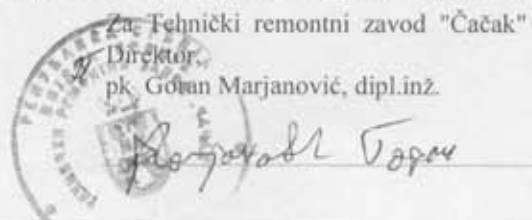 Za Tehnički remontni zavod "Čačak"
Direktor,
pk Goran Marjanović, dipl.inž.